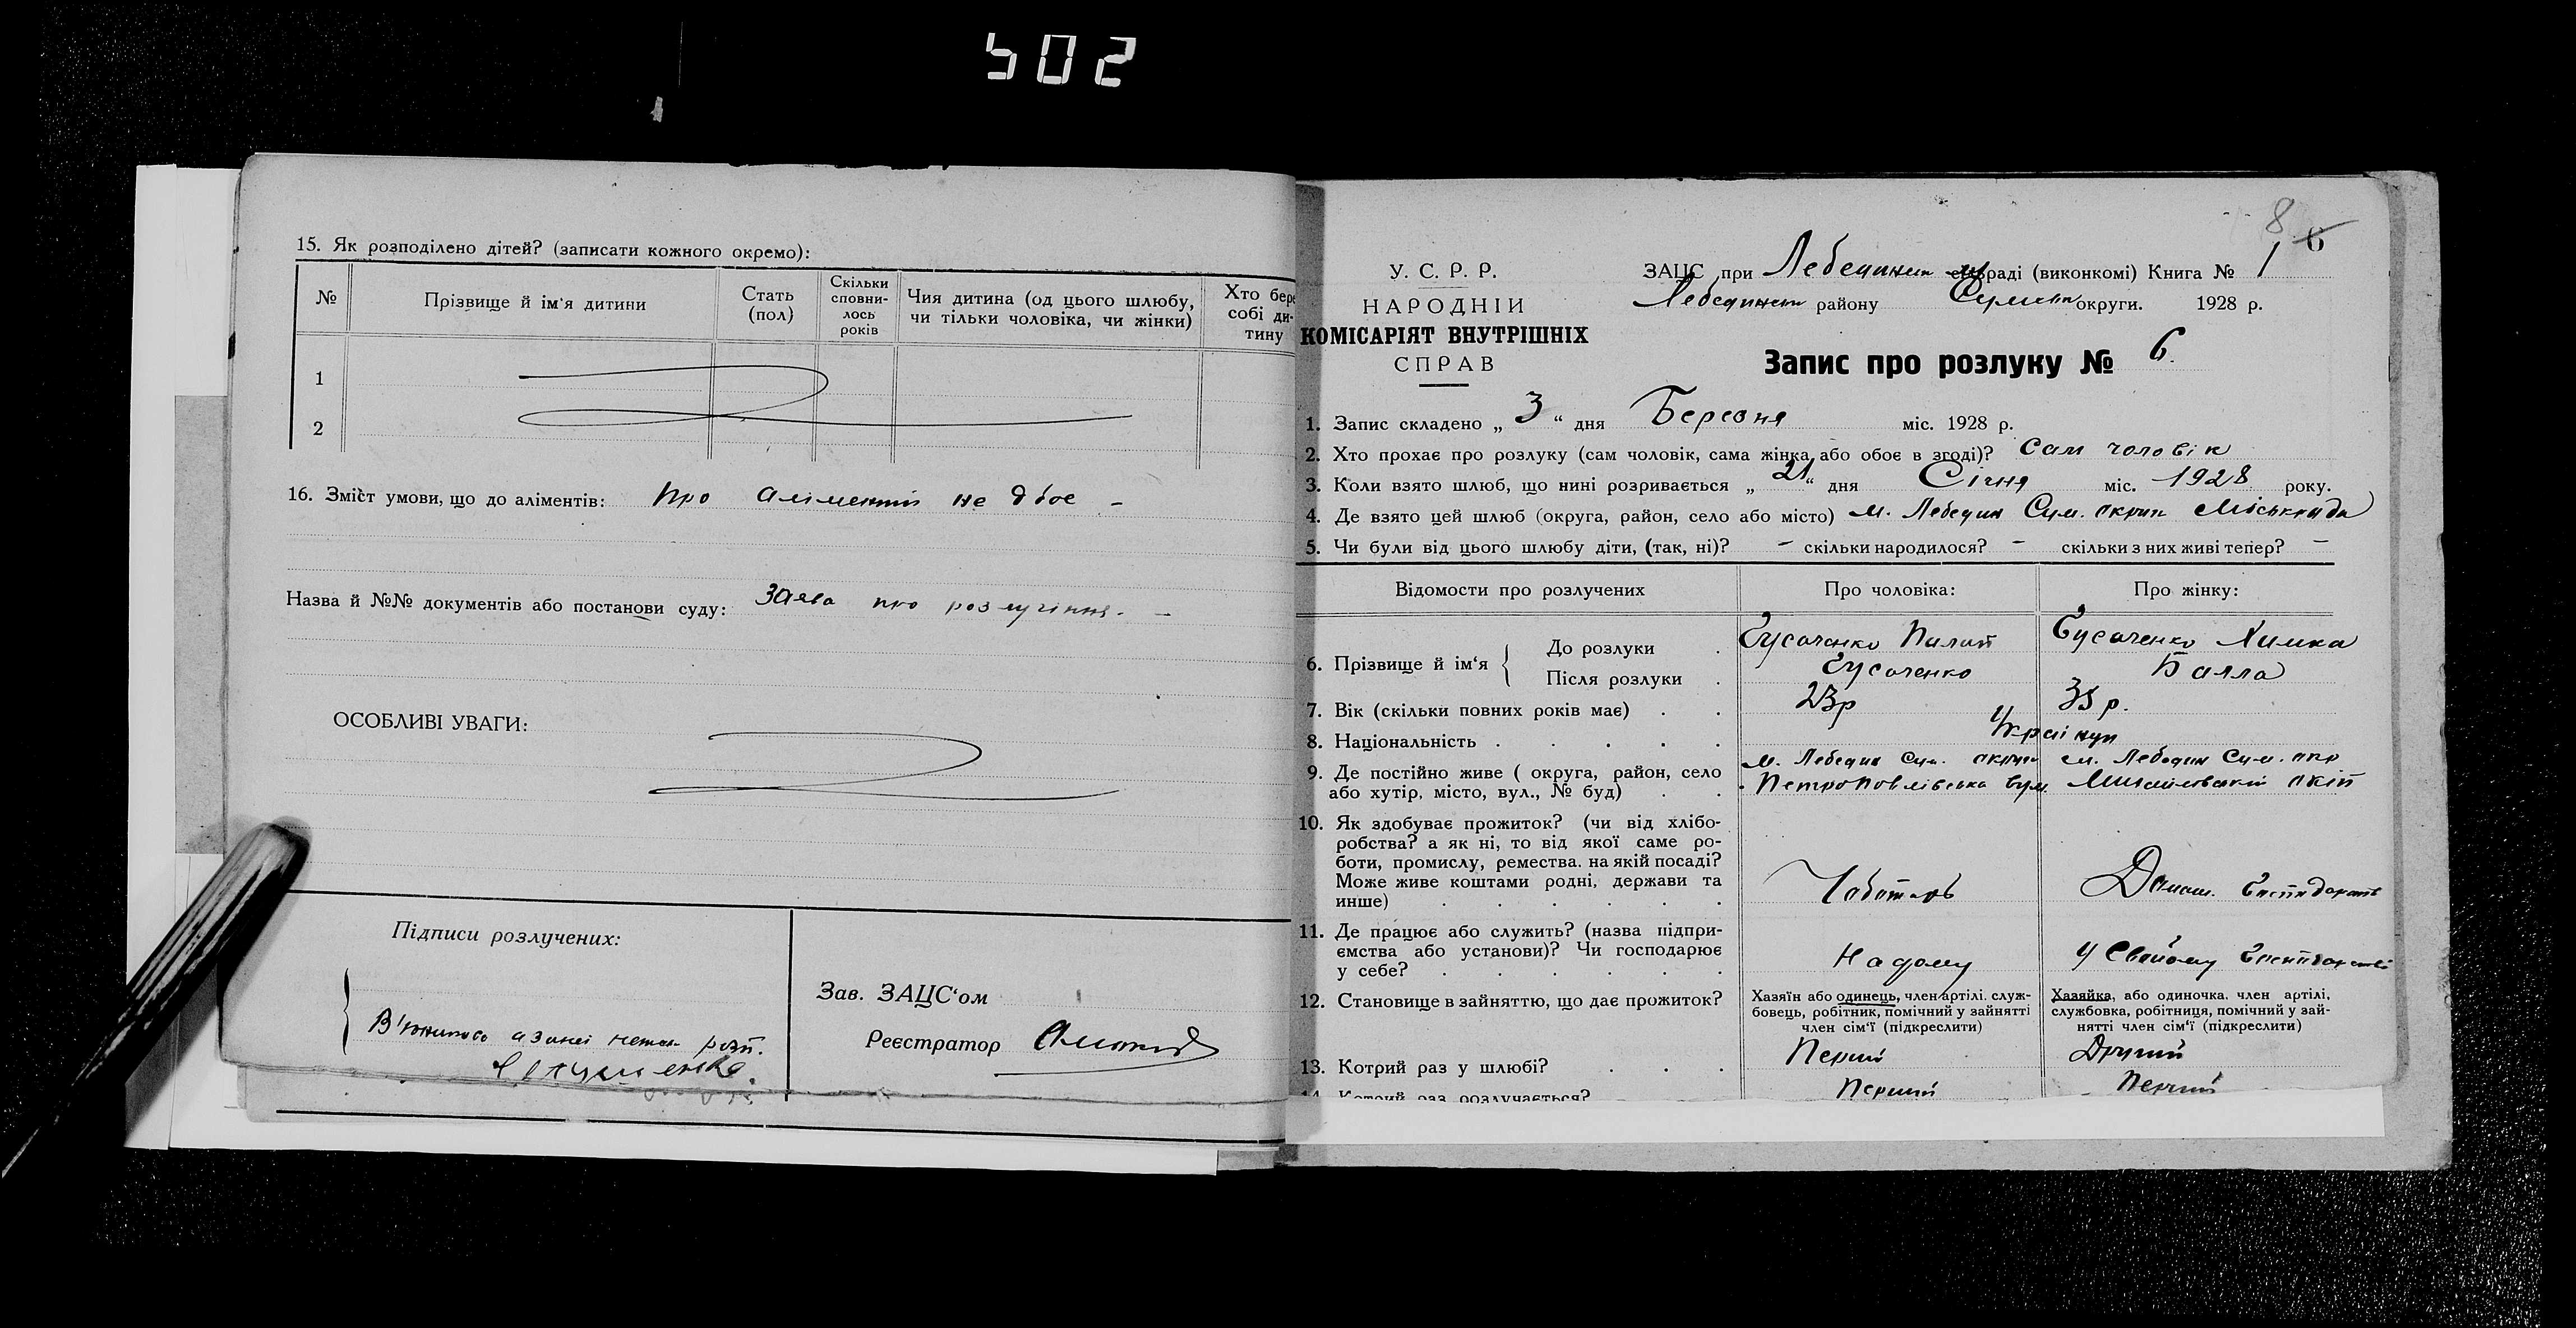 502
15. Як розподілено дітей? (записати кожного окремо):
№ Прізвище й ім‘я дитини Стать (пол) Скільки сповнилось років Чия дитина (од цього шлюбу, чи тільки чоловіка, чи жінки) Хто бере собі ди-тину
1
2
16. Зміст умови, що до аліментів: Про аліменти не дбає –
Назва й №№ документів або постанови суду: Заява про розлучіння. –
ОСОБЛИВІ УВАГИ:
Підписи розлучених:
Зав. ЗАЦС‘ом
Реєстратор
8
6
У. С. Р. Р.
НАРОДНІЙ
КОМІСАРІЯТ ВНУТРІШНІХ
СПРАВ
ЗАЦС при Лебединськ м раді (виконкомі) Книга № 1
Лебединськ району Сумськ округи. 1928 р.
Запис про розлуку № 6.
1. Запис складено „ 3 “ дня Березня міс. 1928 р.
2. Хто прохає про розлуку (сам чоловік, сама жінка або обоє в згоді)? Сам чоловік
3. Коли взято шлюб, що нині розривається „ 21 “ дня Січня міс. 1928 року.
4. Де взято цей шлюб (округа, район, село або місто) м. Лебедин Сум. округи Міськрада
5. Чи були від цього шлюбу діти, (так, ні)? – скільки народилося? – скільки з них живі тепер? –
Відомости про розлучених Про чоловіка: Про жінку:
6. Прізвище й ім‘я
До розлуки . Гусаченко Пилип Гусаченко Химка
Після розлуки . Гусаченко Балла
7. Вік (скільки повних років має) . . 23р 35 р.
8. Національність . . . . . Українці
9. Де постійно живе ( округа, район, село м. Лебедин Сум. округи м. Лебедин Сум. окр
або хутір, місто, вул., № буд) . . Петропавлівська вул.
10. Як здобуває прожиток? (чи від хлібо-
робства? а як ні, то від якої саме ро-
боти, промислу, ремества. на якій посаді?
Може живе коштами родні, держави та
инше) . . . . . . Чоботарь Домаш. Господарств
11. Де працює або служить? (назва підпри-
ємства або установи)? Чи господарює
у себе? . . . . . . На дому У Свойому Господарстві
12. Становище в зайняттю, що дає прожиток?
Хазяїн або одинець, член артілі. служ-
бовець, робітник, помічний у зайнятті
член сім‘ї (підкреслити)
Хазяйка, або одиночка. член артілі,
службовка, робітниця, помічний у зай-
нятті член сім‘ї (підкреслити)
13. Котрий раз у шлюбі? . . . Перший Другий
14. Котрий раз розлучається? Перший Перший